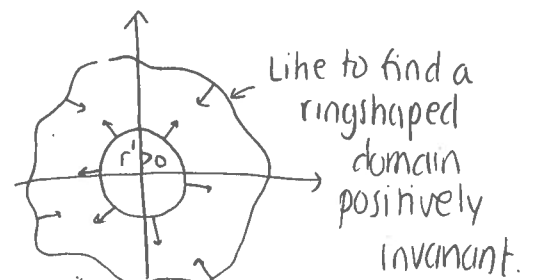 Like to find a
ringshaped
domain
positively
invariant.
r' > 0